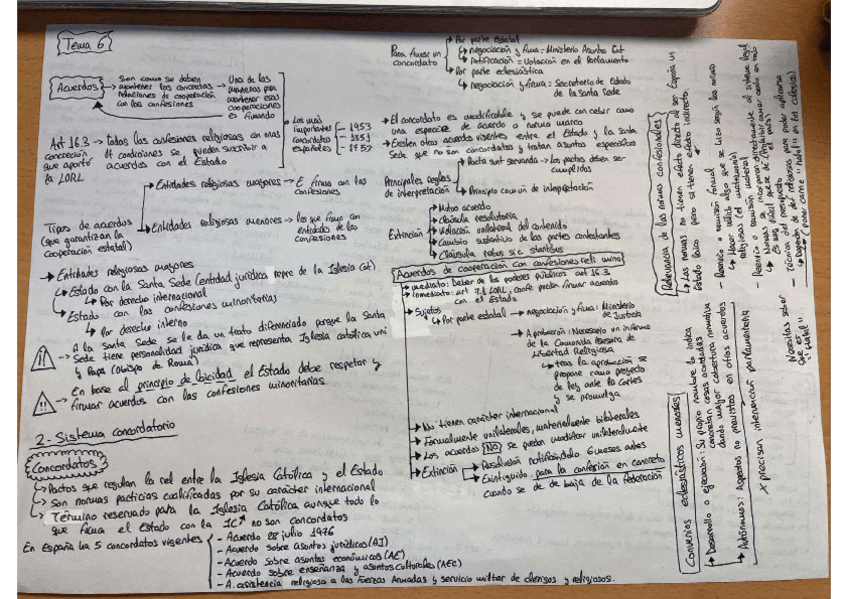 Tema 6
Acuerdos
Son como se deben
mantener las concretas
relaciones de cooperación
con las confesiones
Una de las
maneras para
mantener esas
cooperaciones
es firmando
Los más
importantes
concordatos
españoles
1953
1851
1753
Art 16.3 → todas las confesiones religiosas con unas
concreción
que aportó
la LORL
condiciones se pueden suscribir a
acuerdos con el Estado
Tipos de acuerdos
(que garantizan la
cooperación estatal)
Entidades religiosas mayores → E firma con las
confesiones
Entidades religiosas menores → los que firma con
entidades de las
confesiones
→ Entidades religiosas mayores
Estado con la Santa Sede (entidad jurídica repre de la Iglesia Cat)
Por derecho internacional
Estado con las confesiones minoritarias
Por derecho interno
A la Santa Sede se le da un trato diferenciado porque la Santa
Sede tiene personalidad jurídica que representa Iglesia católica uni
y Papa (obispo de Roma)
En base al principio de laicidad el Estado debe respetar y
firmar acuerdos con las confesiones minoritarias.
2.- Sistema concordatorio
Concordatos
Pactos que regulan la rel entre la Iglesia Católica y el Estado
Son normas pacticias cualificadas por su carácter internacional
Término reservado para la Iglesia Católica aunque todo lo
que firma el Estado con la IC no son concordatos
En España hay 5 concordatos vigentes
- Acuerdo 28 julio 1976
- Acuerdo sobre asuntos jurídicos (AJ)
- Acuerdo sobre asuntos económicos (AE)
- Acuerdo sobre enseñanza y asuntos culturales (AEC)
- A. asistencia religiosa a las Fuerzas Armadas y servicio militar de clérigos y religiosos.
Para firmar un
concordato
Por parte estatal
negociación y firma = Ministerio Asuntos Ext
ratificación = Votación en el Parlamento
Por parte eclesiástica
negociación y firma = Secretaría de Estado
de la Santa Sede
El concordato es modificable y se puede concebir como
una especie de acuerdo o norma marco
Existen otros acuerdos vigentes entre el Estado y la Santa
Sede que no son concordatos y tratan asuntos específicos
Principales reglas
de interpretación
Pacta sunt servanda → Los pactos deben ser
cumplidos
Principio común de interpretación
Extinción
Mutuo acuerdo
Cláusula resolutoria
Violación unilateral del contenido
Cambio sustantivo de las partes contratantes
Cláusula rebus sic stantibus
Acuerdos de cooperación con confesiones reli mino
mediato: Deber de los poderes públicos art 16.3
inmediato: art 7.1 LORL, confe pueden firmar acuerdos
con el Estado
Sujetos
Por parte estatal → negociación y firma: Ministerio
de Justicia
Aprobación: Necesario un informe
de la Comisión Asesora de
Libertad Religiosa
tras la aprobación se
propone como proyecto
de ley ante la Cortes
y se promulga
No tienen carácter internacional
Formalmente unilaterales, materialmente bilaterales
Los acuerdos NO se pueden modificar unilateralmente
Extinción
Resolución notificándolo 6 meses antes
Extinguido para la confesión en concreto
cuando se de de baja de la federación
Relevancia de las normas confesionales
Las normas no tienen efecto directo al ser España un
Estado laico pero si tienen efecto indirecto.
- Reenvío o remisión formal
Hacer válido algo que se hizo según las normas
religiosas (el matrimonio)
- Reenvío o remisión material
Normas se incorporan directamente al sistema legal
- Técnica del presupuesto
Necesitas saber
que es
"halal"
Convenios eclesiásticos menores
Desarrollo o ejecución: Su propio nombre lo indica
concretan cosas acordadas
dando mayor cobertura normativa
Autónomos: Aspectos no previstos en otros acuerdos
x precisan intervención parlamentaria